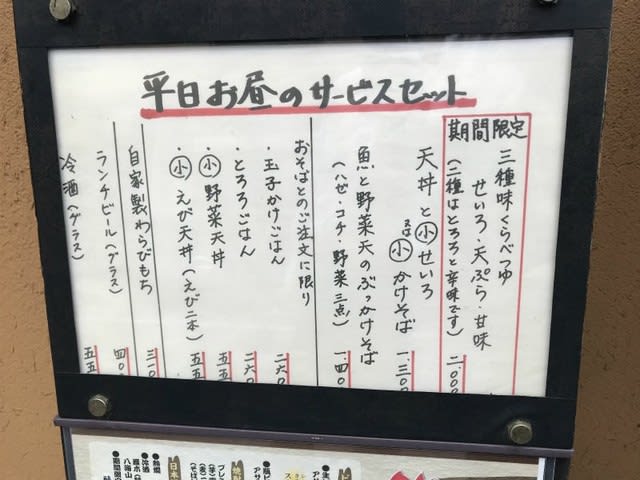 平日お昼のサービスセット
期間限定
三種味くらべつゆ
せいろ・天ぷら・甘味
(二種はとろろと辛味です)
二.〇〇
天丼と小せいろ
又は小かけそば
一.三〇
魚と野菜天のぶっかけそば
(ハゼ・コチ・野菜三点)
一.四〇
おそばとのご注文に限り
・玉子かけごはん
二六〇
・とろろごはん
二六〇
・小野菜天丼
五五
・小えび天丼(えび二本)
五五
自家製わらびもち
三一〇
ランチビール(グラス)
四〇
冷酒(グラス)
五五